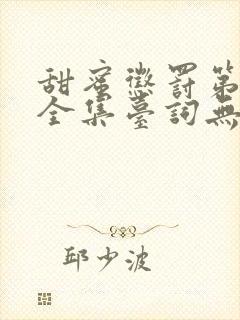 甜蜜懲罰第
全集臺詞無
邱少波